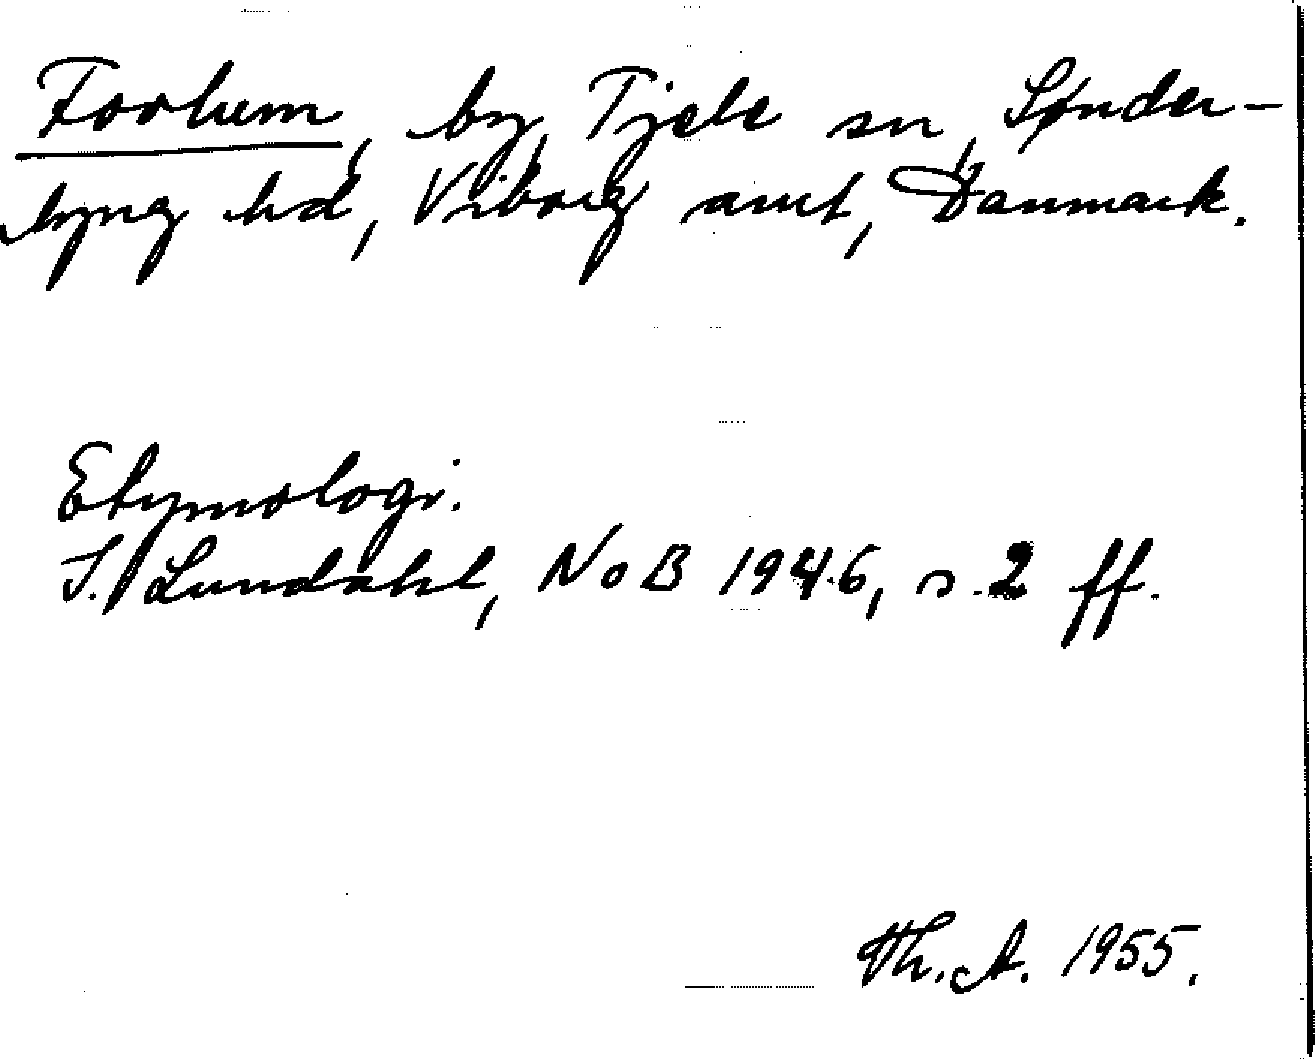 Foulum, by, Tjele sn, Sønder-
lyng hd, Viborg amt, Danmark.
Etymologi.
I. Lundahl, NoB 1946, s. 2 ff.
Th. A. 1955.